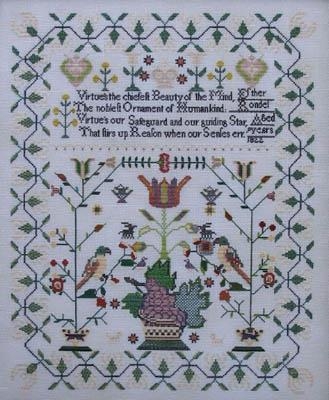 Virtue's the chiefest Beauty of the Mind,
The noblest Ornament of Humankind.
Virtue's our Safeguard and our guiding Star,
That stirs up Reason when our Senses err.
Esther
Rondel
Aged
years
1822